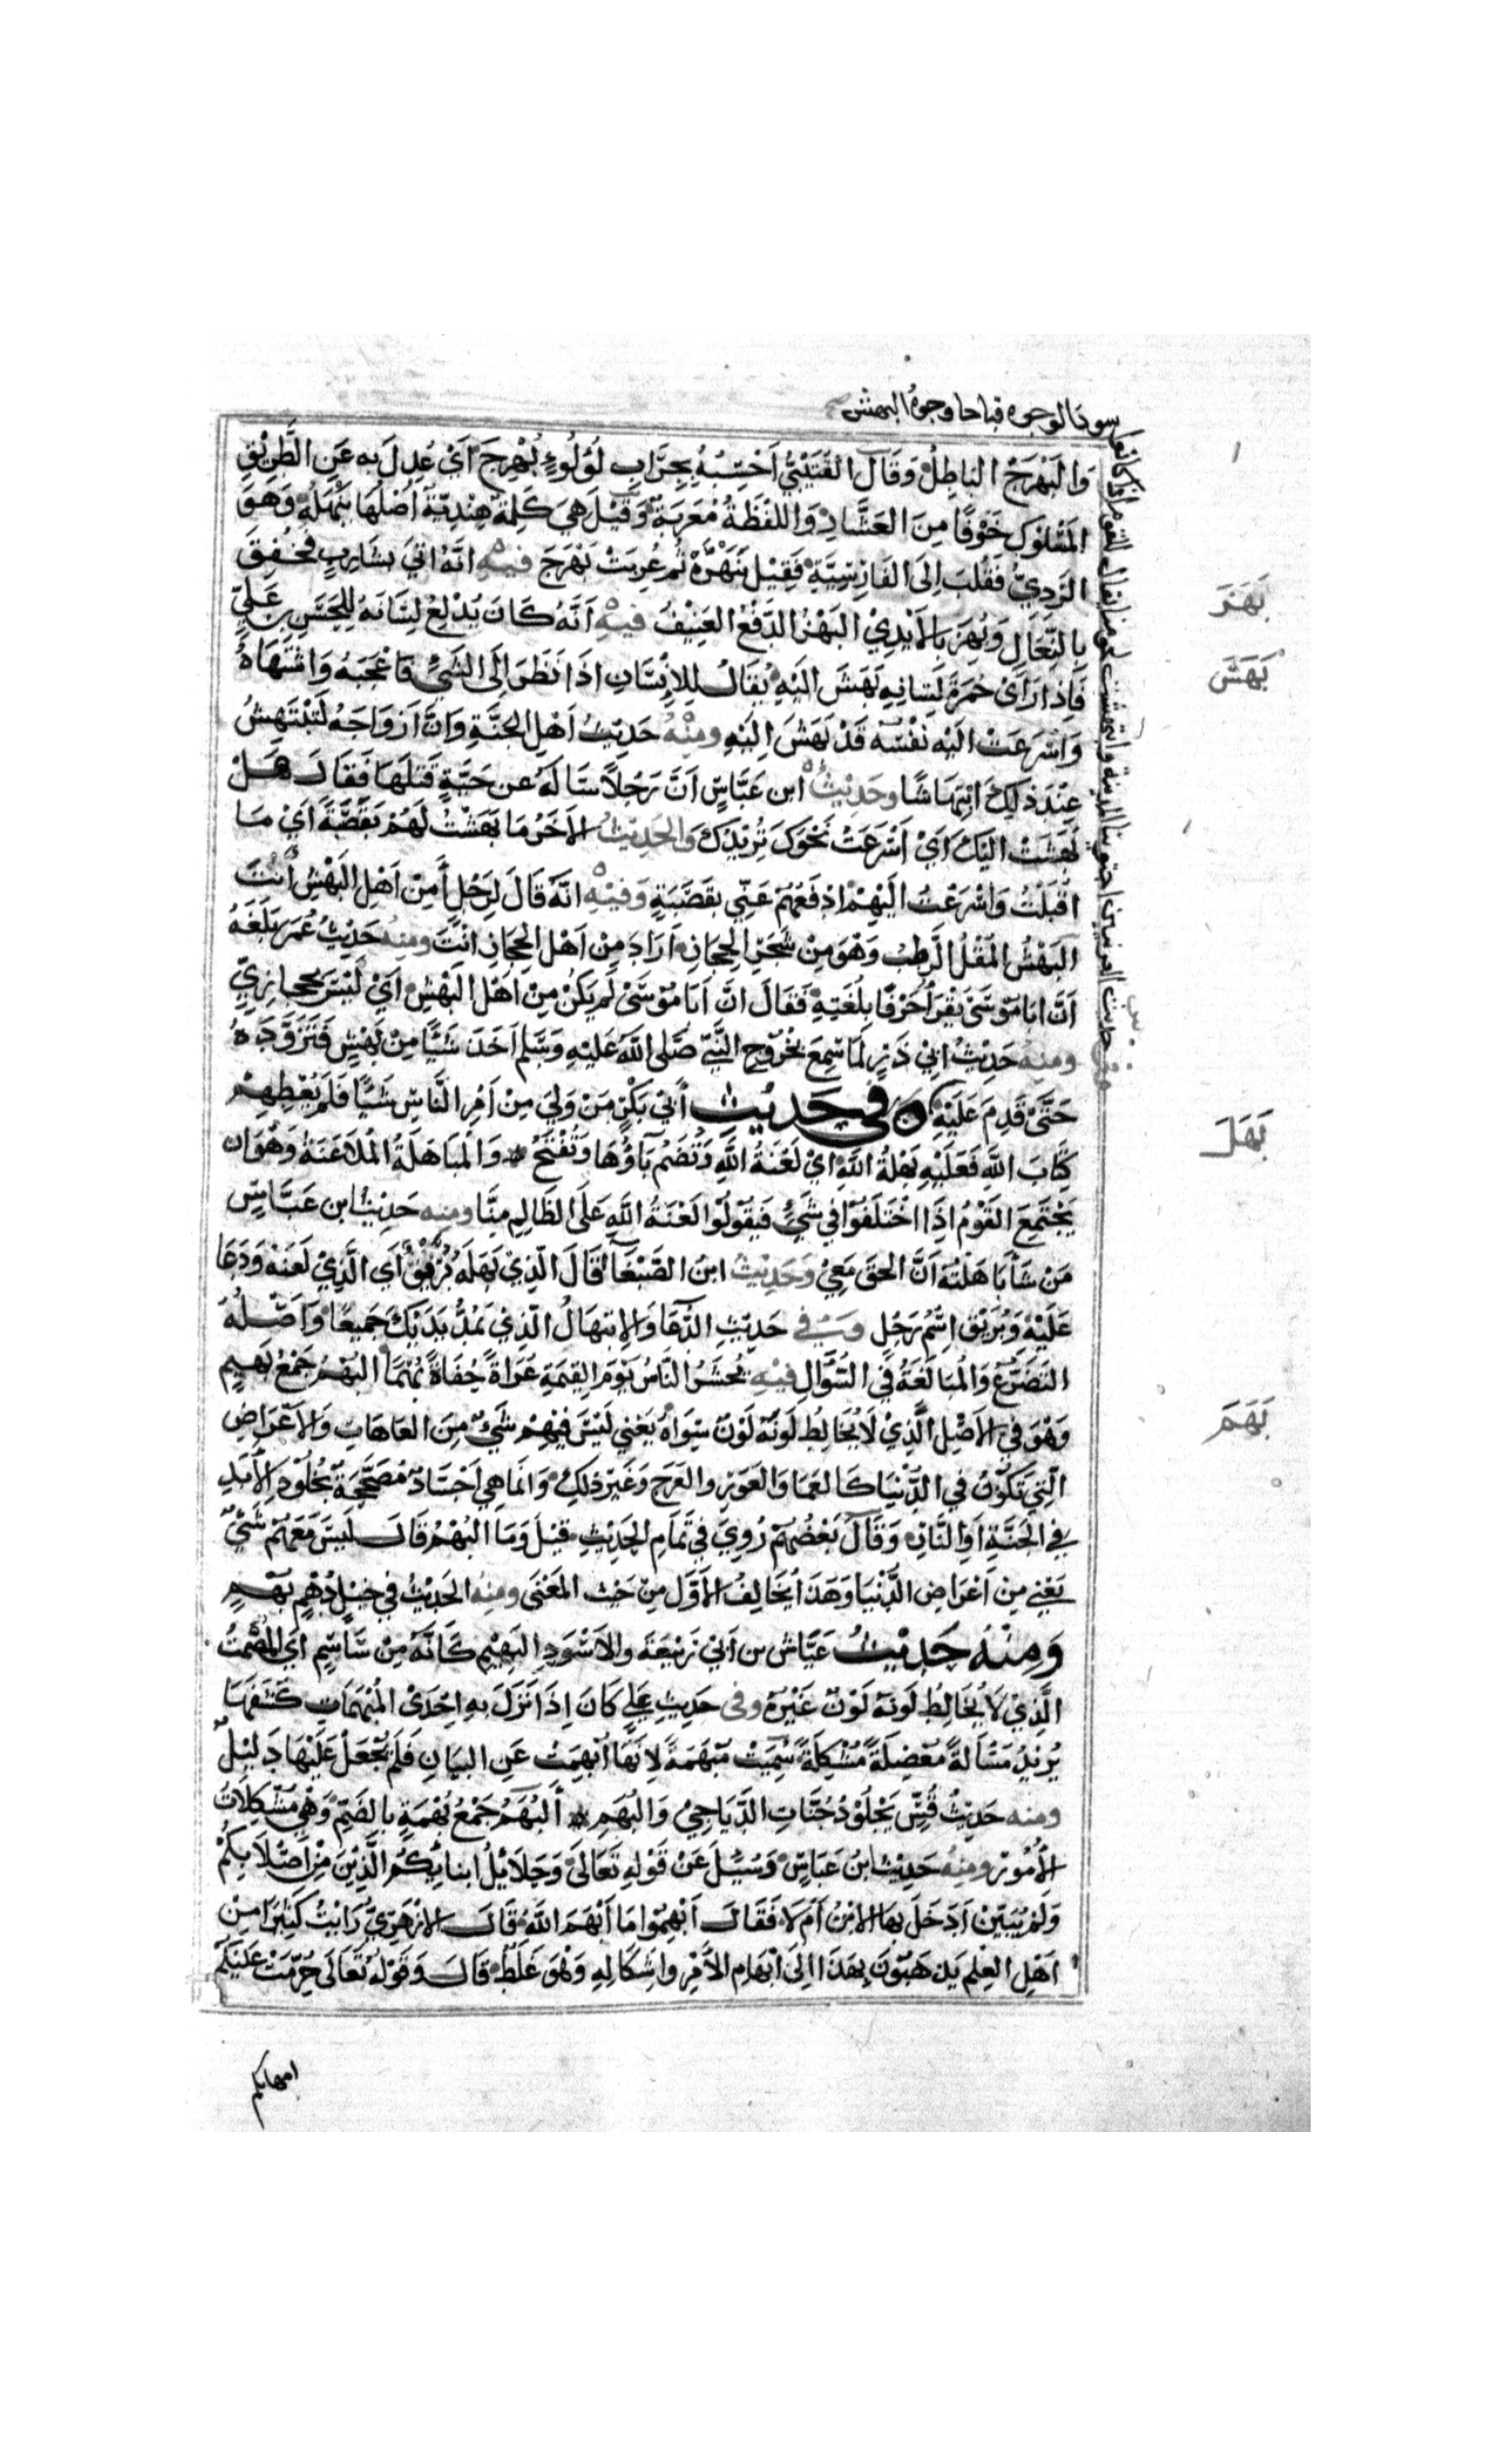 سود الوجوه قباحا وجوه البهش
والبَهْرَجُ الباطِلُ وَقَالَ القُتَيْبِيُّ اَحْسِبُهُ بِجِرَابِ لُؤلُوءٍ بُهْرِجَ اَيْ عُدِلَ بِه عَنِ الطَّرِيْقِ
المَسْلوْكِ خَوْفًا مِنَ العَشَّارِ وَاللفْظَةُ مُعَرَبَةٌ وَقِيْلَ هِيَ كَلِمَةٌ هِنْدِيَّةٌ اَصْلُهَا نَبَهْلَهْ وَهوَ
الرَدِيُّ فَقُلِبَ اِلَى الفَارِسِيَّةِ فَقِيْلَ نَبَهْرَهْ ثُم عُرِبَتْ بَهْرَجَ فيْهِ انَّهُ اتيَ بشَارِبٍ فَخُفِقَ
بِالنِّعَالِ وَبُهِزَ بِالاَيْدِيْ البَهْزُ الدَّفْعُ العَنِيْفُ فيهِ اَنَّهُ كَانَ يُدْلِعُ لِسَانَهُ لِلحَسَنِ بن عَلِيٍّ
فَاِذَا رَاَىْ حُمرَةَ لِسَانِهِ بَهَشَ اليَهِ يُقَالُ لِلاِنْسَانِ اذَا نَظَرَ اِلَى الشَيْءِ فَاعْجَبَهُ وَاشْتَهَاهُ
وَاسْرَعَتْ اليْهِ نَفْسُه قَدْ بَهَشَ اِليَهِ ومِنْهُ حَدِيْثُ اَهْلِ الجَنَّةِ وَانَّ اَزوَاجَهُ لَتَبْتَهِشُ
عِنْدَ ذلِكَ ابْتِهَاشًا وحَدِيْثُ ابن عَبَّاسٍ اَنَّ رَجُلاً سَالَهُ عن حَيَّةٍ قَتلَهَا فَقَالَ هَلْ
بَهَشَتْ اليْكَ اَيْ اَسْرَعَتْ نَحْوَكَ تُرِيْدُكَ وَالحَدِيْثُ الاَخَرُ مَا بَهَشْتُ لَهُمْ بقَصَبَةٍ اَيْ مَا
اقْبَلْتُ وَاسْرَعْتُ اليْهِمْ ادْفَعُهُمْ عَنِّي بقَصَبَةٍ وَفيْهِ انَّهُ قَالَ لِرَجُلٍ أَمِنْ اَهْلِ البَهْشِ اَنْتَ
البَهْشُ المُقْلُ الرَّطْبُ وَهْوَ مِنْ شجَرِ الحِجَازِ اَرَادَ مِنْ اَهْلِ الحِجَازِ اَنْتَ ومنه حَدِيْثُ عُمَرَ بَلَغَهُ
اَنَّ ابَا مُوْسَىْ يَقْرَأُ حَرْفًا بِلُغَتِهِ فَقَالَ انَّ اَبَا مُوْسَىْ لَم يَكُنْ مِنْ اهْلِ البَهْشِ اَيْ لَيْسَ بحِجَازِيٍّ
ومنه حَدِيْثُ ابيْ ذَرٍ لَمَّا سَمِعَ بِخُرُوْجِ النَّبِيّ صَلى اللهُ عَليْهِ وَسَلم اَخَذَ شَيْئًا مِنْ بَهْشٍ فَتَزَوَّدَهُ
حَتَّىْ قَدِمَ عَلَيْهِ في حَدِيْثِ أَبيْ بَكْرٍ مَنْ وَلِيَ مِنْ اَمْرِ النَّاسِ شَيْئًا فَلَم يُعْطِهِمْ
كِتَابَ اللهِ فَعَليْهِ بَهْلَةُ اللهِ اَيْ لَعْنَةُ اللهِ وَتُضَمُ بَاؤُهَا وَتُفْتَحُ وَالمُبَاهَلَةُ المُلاَعَنَةُ وَهُوَ ان
يَجْتَمِعَ القَوْمُ اِذَا اخْتَلَفُوْا في شَيْءٍ فَيَقُوْلُوْا لَعْنَةُ اللهِ عَلَى الظَالِمِ مِنَّا ومنه حَدِيْثُ ابن عَبَّاسٍ
مَن شَاْ بَاهَلْتُه اَنَّ الحَقَ مَعِيْ وَحَدِيْثُ ابنِ الصَّبْغَاْ قَالَ الَّذِيْ بَهَلَه بُرَيْقٌ اَيِ الَّذِيْ لَعَنَه وَدَعَا
عَلَيْهِ وَبُرَيْق اسْمُ رَجُلٍ وَفي حَدِيْثِ الدُّعَا وَالابتِهَالُ الَّذِيْ تَمُدُّ يَدَيْكَ جَمِيْعًا وَاَصْلُهُ
التَضَرُّعُ وَالمُبَالَغَةُ في السُّؤَالِ فيْهِ يُحشَرُ النَّاسُ يَوْمَ القِيمَةِ عُرَاةً حُفَاةً بُهْمًا البُهْمُ جَمْعُ بَهِيْمٍ
وَهْوَ في الاَصْلِ الَّذِيْ لاَ يُخَالِطُ لَونَه لَوْنٌ سِوَاهُ يَعْني لَيْسَ فيْهِمْ شَيْءٌ مِنَ العَاهَاتِ وَالاَعْرَاضِ
التِيْ تَكُوْنُ في الدُّنْيَا كَالعَمَا وَالعَوَرِ والعَرَجِ وَغَيْرِ ذلِكَ وَانَمَا هِي اَجْسَادٌ مُصَحَّحَةٌ بِخُلُوْدِ الاَبَدِ
في الجَنَّةِ اَوِ النَّارِ وَقَالَ بَعْضُهُم رُوِيَ في تَمامِ الحَدِيْثِ قيْلَ وَمَا البُهْمُ قَالَ لَيسَ مَعَهُمْ شَيْءٌ
يَعْنِي مِن اَعْرَاضِ الدُّنْيَا وَهَذَا يُخَالِفُ الاَوَّلَ مِنْ حَيْثُ المَعْنَى ومنْهُ الحَدِيْثُ في خيْلٍ دُهْمٍ بُهْمٍ
وَمِنْهُ حَدِيْثُ عَيَّاشِ بن اَبيْ رَبيْعَةَ والاَسْوَدِ البَهِيْمِ كَانَّهُ مِنْ سَاسَمٍ اَيِ المُصْمَتُ
الَّذِيْ لاَ يُخَالِطُ لَونَه لَوْنٌ غَيْرُهُ وفي حَدِيْثِ عَلِيٍ كَانَ اِذَا نَزَلَ به اِحْدَى المُبْهَمَاتِ كَشَفَهَا
يُرِيْدُ مَسْاَلةً مُعْضِلَةً مُشْكِلَةً سُمِيَتْ مُبْهَمَةً لاِنَهَا اُبْهِمَتْ عَنِ البَيَانِ فَلَم يُجْعَلْ عَلَيْهَا دَلِيْلٌ
ومنه حَدِيْثُ قُسٍّ تَجْلُوْ دُجُنَّاتِ الدَّيَاجِيْ وَالبُهَمِ اَلبُهَمُ جَمْعُ بُهْمَةٍ بالضَمِّ وَهِيَ مُشْكِلاَتُ
الاُمُوْر ومنه حَدِيْث ابنُ عَبَاسٍ وَسُئِلَ عَنْ قَوْلهِ تَعَالىْ وَحَلاَئِلُ ابنائِكُمُ الَّذِيْنَ مِنْ اَصْلاَبِكُمْ
وَلمْ يُبَيّنْ اَدَخَلَ بهَا الابْنُ أَمْ لاَ فَقَالَ اَبْهِمُوْا مَا اَبْهَمَ اللهُ قَالَ الازْهَرِيُّ رَايْتُ كَثِيْرًا مِنْ
اَهْلِ العِلم يَذهَبُوْنَ بِهَذَا اِلَى ابْهَامِ الاَمْرِ واشْكَالِهِ وَهْوَ غَلَطٌ قَالَ وَقَوْلُهُ تَعَالَى حُرِّمَتْ عَلَيْكُمْ
امهاتكم
بَهَزَ
بَهَشَ
بَهَلَ
بَهَمَ